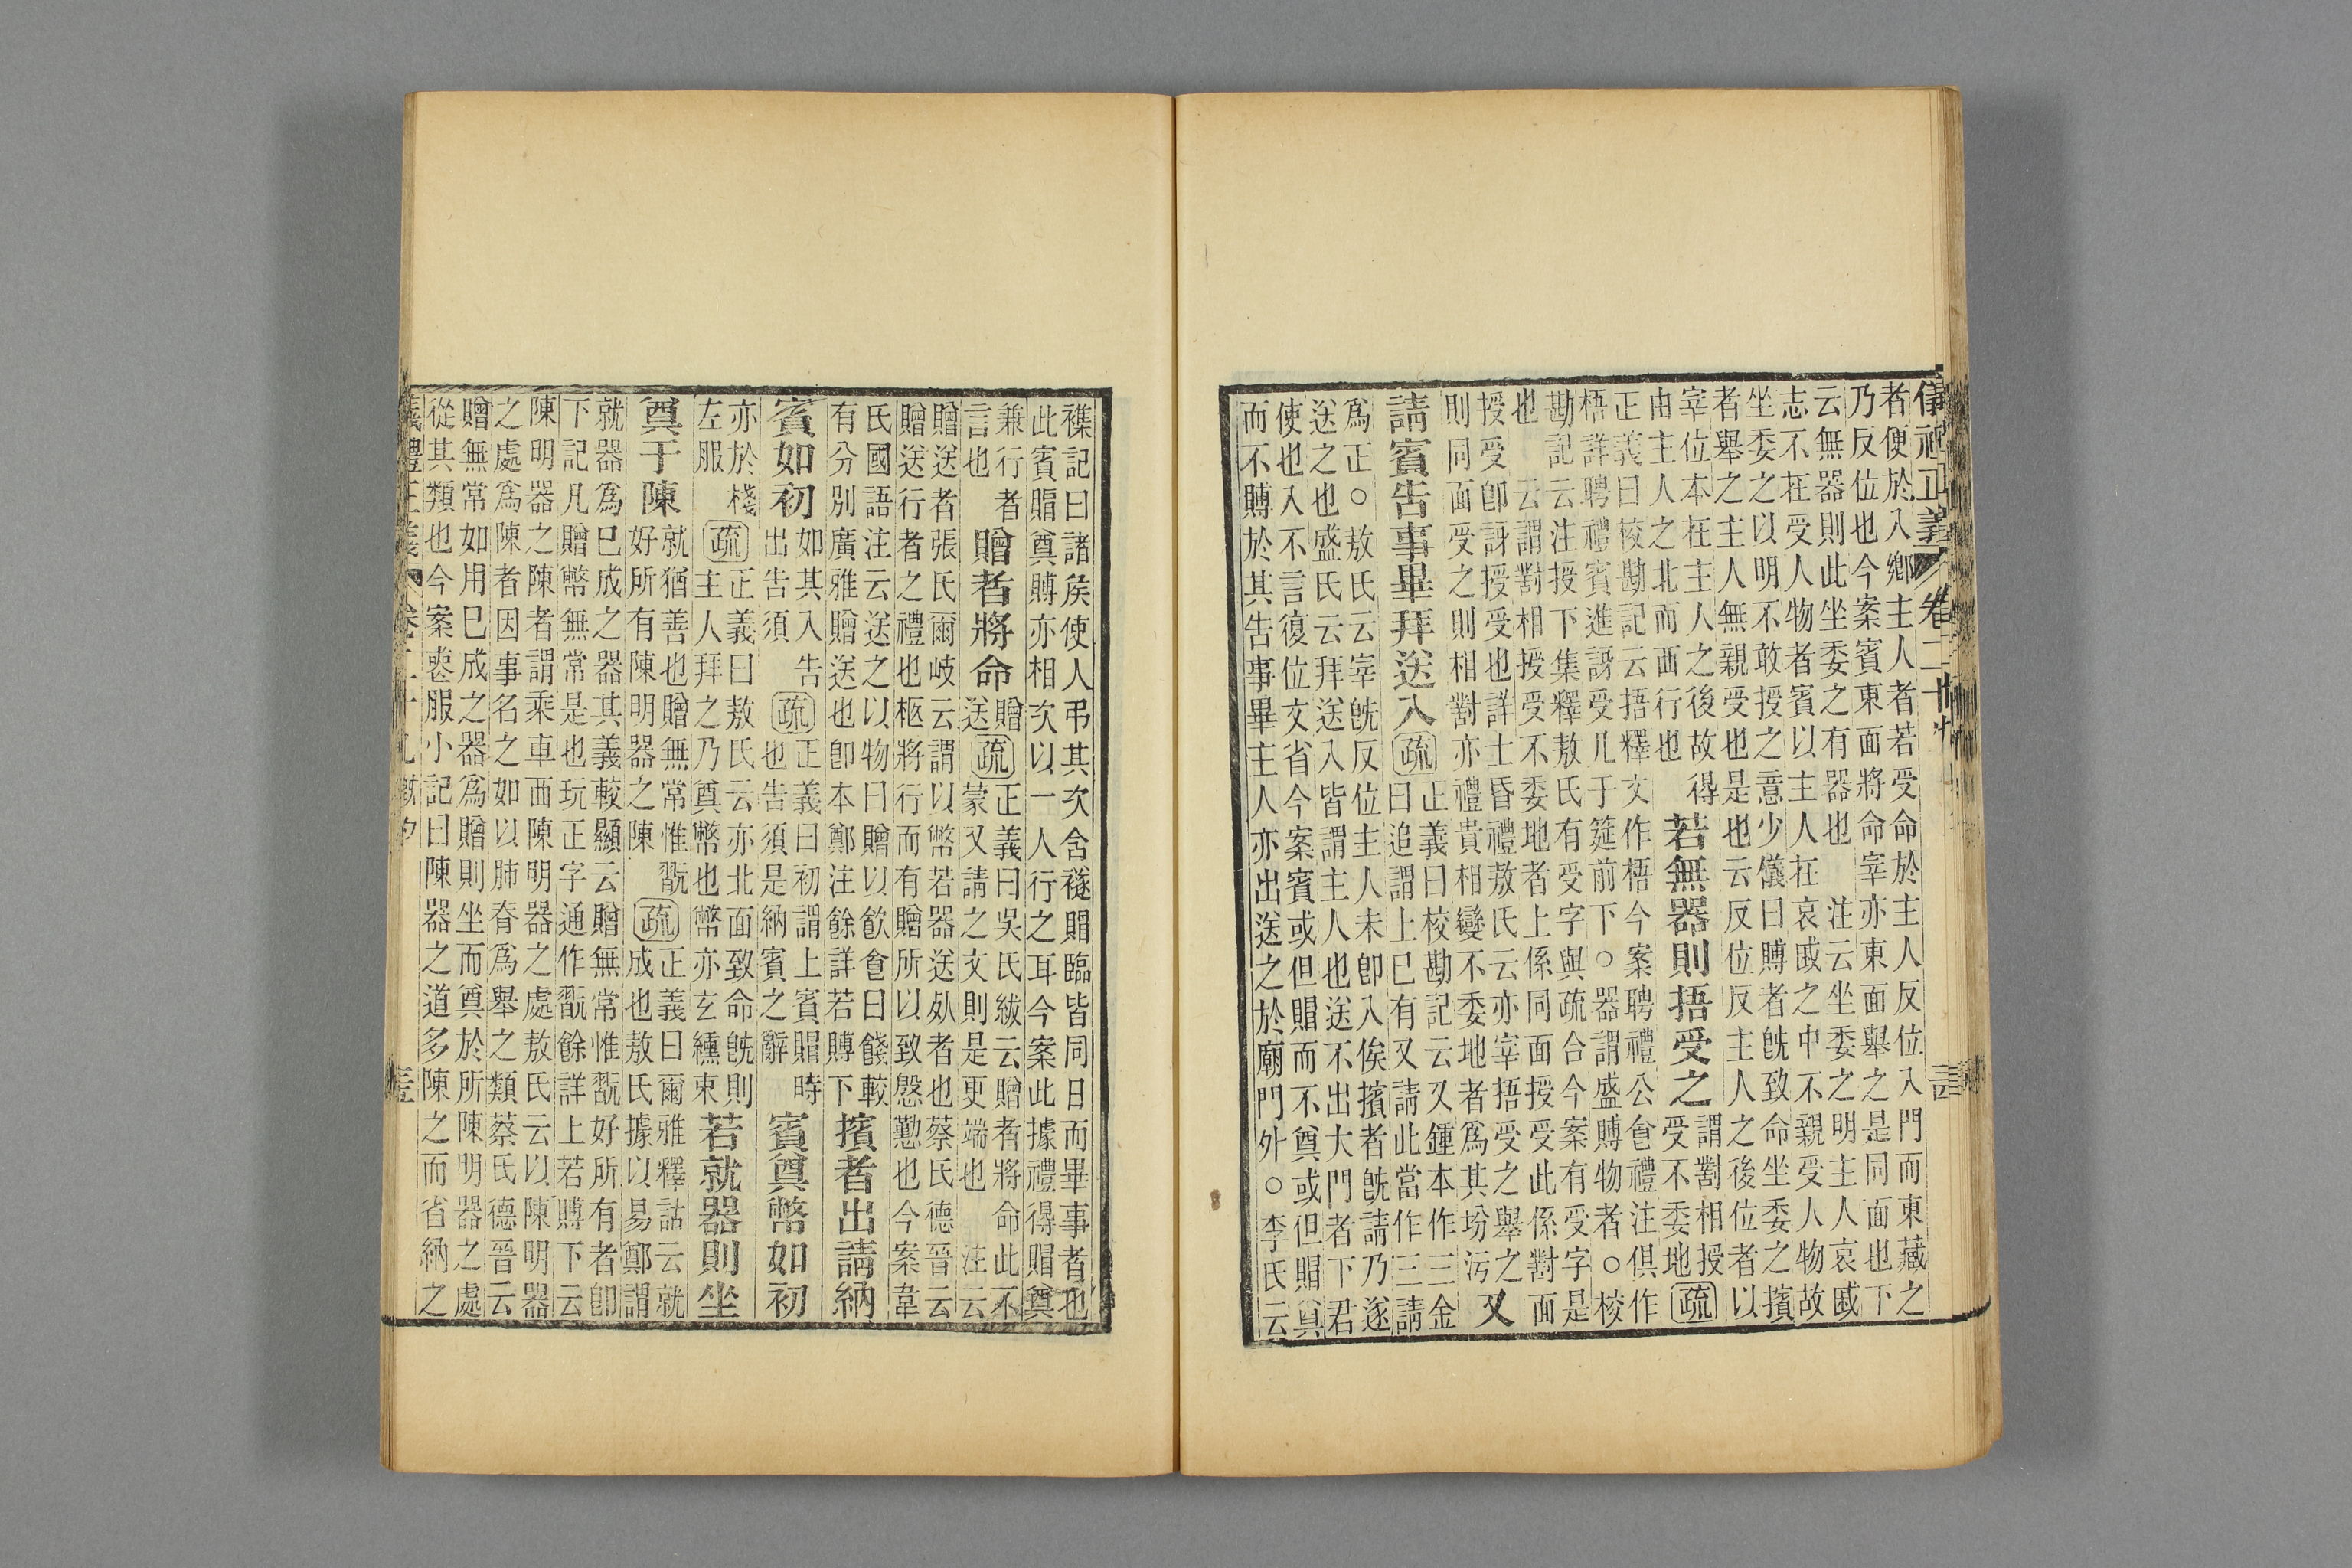 儀禮正義 卷二十九
者便於入鄉主人者若受命於主人反位入門而東藏之
乃反位也今案賓東面將命宰亦東面舉之是同面也下
云無器則此坐委之有器也 注云坐委之明主人哀戚
志不在受人物者賓以主人在哀戚之中不親受人物故
坐委之以明不敢授之意少儀曰賻者旣致命坐委之擯
者舉之主人無親受也是也云反位反主人之後位者以
宰位本在主人之後故得
由主人之北而西行也
若無器則捂受之
謂對相授
受不委地
疏
正義曰校勘記云捂釋文作梧今案聘禮公食禮注俱作
梧詳聘禮賓進訝受几于筵前下○器謂盛賻物者○校
勘記云注授下集釋敖氏有受字與疏合今案有受字是
也 云謂對相授受不委地者上係同面授受此係對面
授受卽訝授受也詳士昏禮敖氏云亦宰捂受之舉之
則同面受之則相對亦禮貴相變不委地者爲其坋污
又
請賓告事畢拜送入
疏
正義曰校勘記云又鍾本作三金
曰追謂上已有又請此當作三請
爲正○敖氏云宰旣反位主人未卽入俟擯者旣請乃遂
送之也盛氏云拜送入皆謂主人也送不出大門者下君
使也入不言復位文省今案賓或但賵而不奠或但賵奠
而不賻於其告事畢主人亦出送之於廟門外○李氏云
三四
襍記曰諸矦使人弔其次含襚賵臨皆同日而畢事者也
此賓賵奠賻亦相次以一人行之耳今案此據禮得賵奠
兼行者
言也
贈者將命
贈
送
疏
正義曰吳氏紱云贈者將命此不
蒙又請之文則是更端也 注云
贈送者張氏爾岐云謂以幣若器送死者也蔡氏德晉云
贈送行者之禮也柩將行而有贈所以致慇懃也今案韋
氏國語注云送之以物曰贈以飮食曰餞較
有分別廣雅贈送也卽本鄭注餘詳若賻下
擯者出請納
賓如初
如其入告
出告須
疏
正義曰初謂上賓賵時
也告須是納賓之辭
賓奠幣如初
亦於棧
左服
疏
正義曰敖氏云亦北面致命旣則
主人拜之乃奠幣也幣亦玄纁東
若就器則坐
奠于陳
就猶善也贈無常惟翫
好所有陳明器之陳
疏
正義曰爾雅釋詁云就
成也敖氏據以易鄭謂
就器爲已成之器其義較顯云贈無常惟翫好所有者卽
下記凡贈幣無常是也玩正字通作翫餘詳上若賻下云
陳明器之陳者謂乘車西陳明器之處敖氏云以陳明器
之處爲陳者因事名之如以肺脊爲舉之類蔡氏德晉云
贈無常如用已成之器爲贈則坐而奠於所陳明器之處
從其類也今案喪服小記曰陳器之道多陳之而省納之